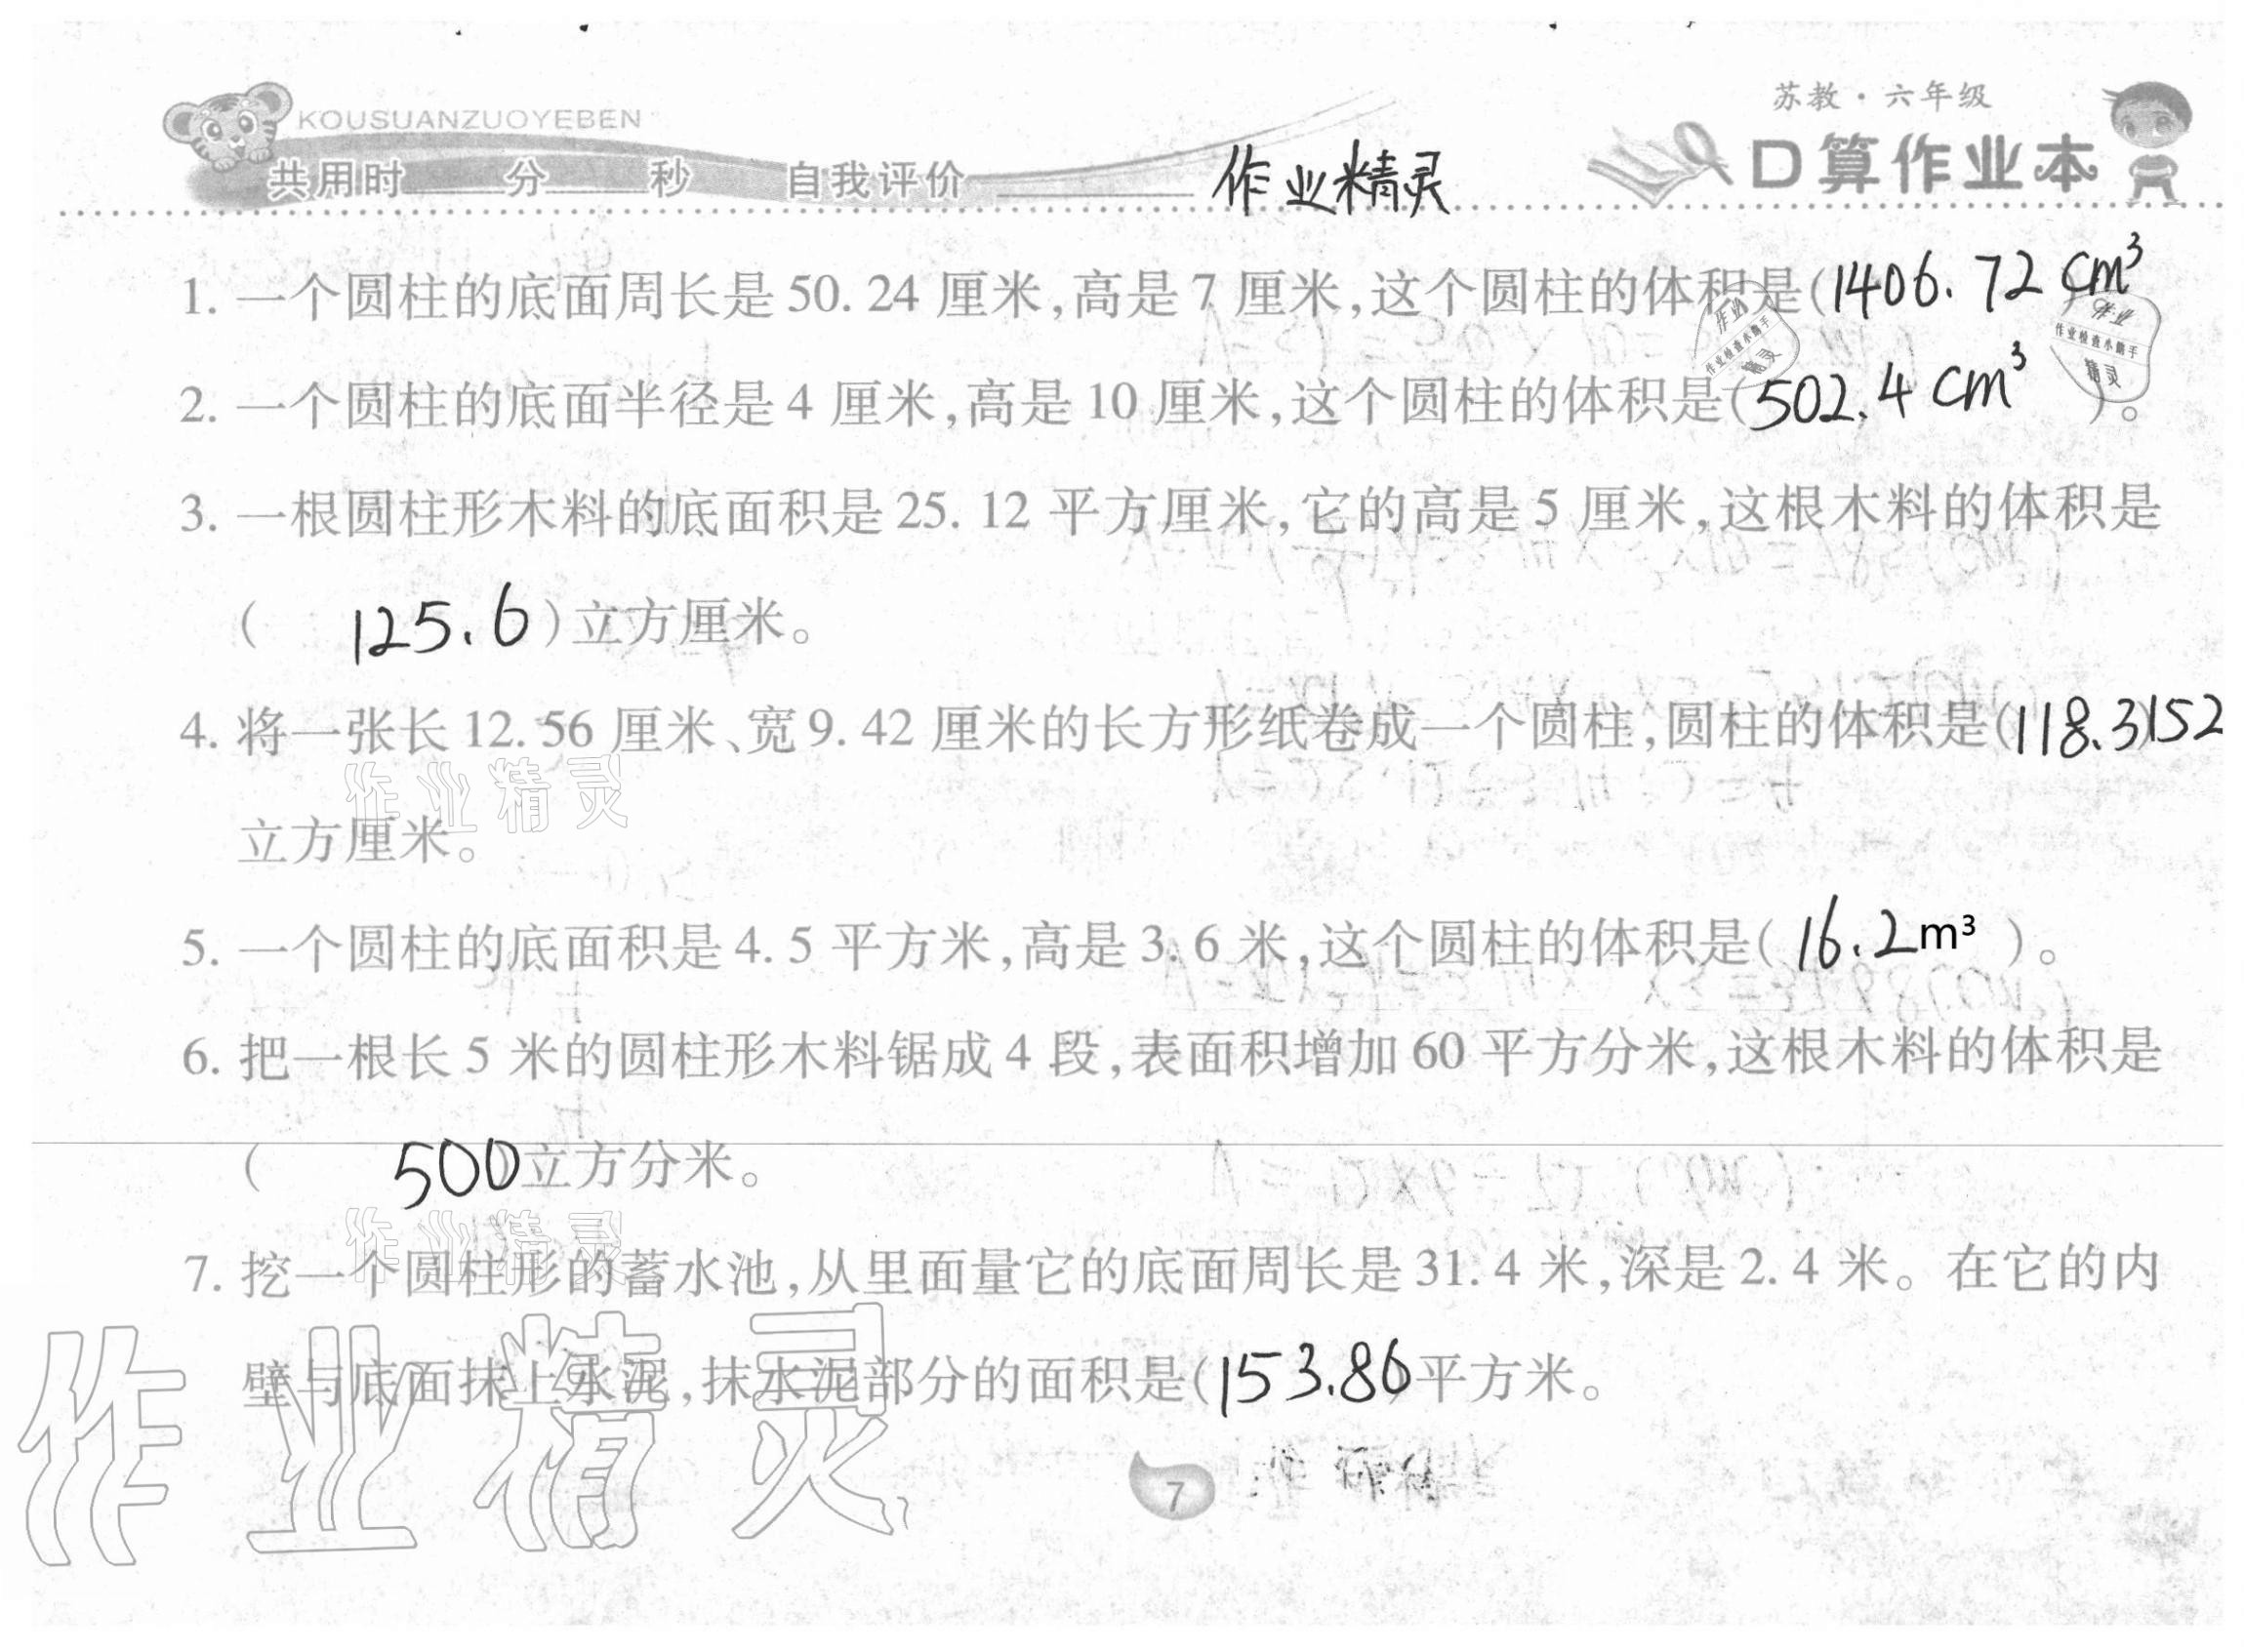 苏教·六年级
KOUSUANZUOYEBEN
口算作业本
共用时 分 秒 自我评价 作业精灵
1. 一个圆柱的底面周长是50.24厘米,高是7厘米,这个圆柱的体积是(1406.72 cm³
2. 一个圆柱的底面半径是4厘米,高是10厘米,这个圆柱的体积是(502.4 cm³ )。
作业
作业检查小助手
精灵
作业
作业检查小助手
精灵
3. 一根圆柱形木料的底面积是25.12平方厘米,它的高是5厘米,这根木料的体积是
( 125.6 )立方厘米。
4. 将一张长12.56厘米、宽9.42厘米的长方形纸卷成一个圆柱,圆柱的体积是(118.3152
作业精灵
立方厘米。
5. 一个圆柱的底面积是4.5平方米,高是3.6米,这个圆柱的体积是( 16.2m³ )。
6. 把一根长5米的圆柱形木料锯成4段,表面积增加60平方分米,这根木料的体积是
( 500)立方分米。
作业精灵
7. 挖一个圆柱形的蓄水池,从里面量它的底面周长是31.4米,深是2.4米。在它的内
壁与底面抹上水泥,抹水泥部分的面积是(153.86平方米。
作业精灵
7